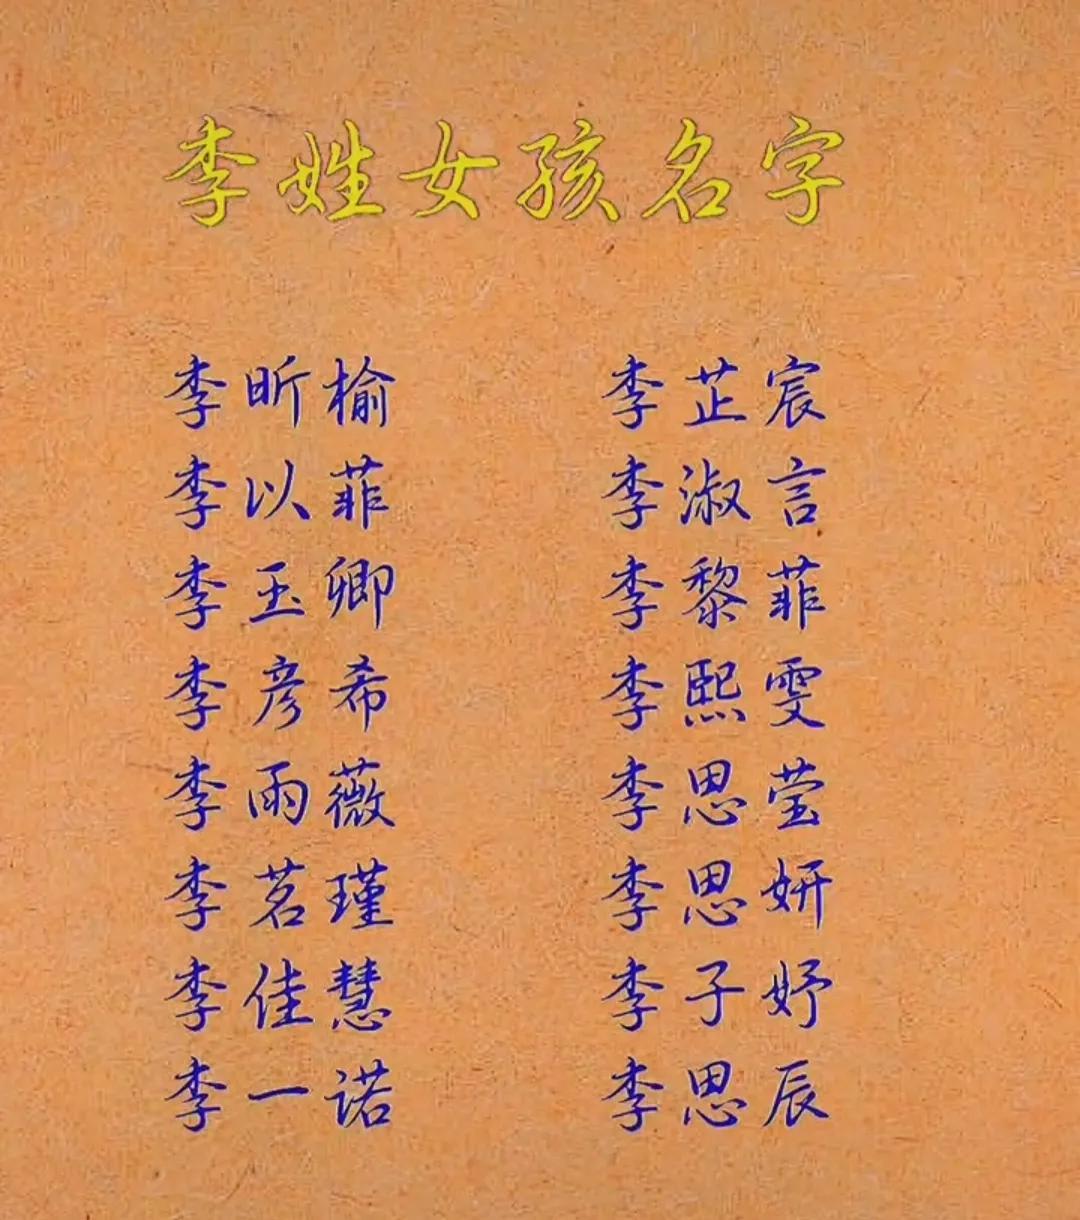 李姓女孩名字
李昕榆 李芷宸
李以菲 李淑言
李玉卿 李黎菲
李彦希 李熙雯
李雨薇 李思莹
李茗瑾 李思妍
李佳慧 李子妤
李一诺 李思辰